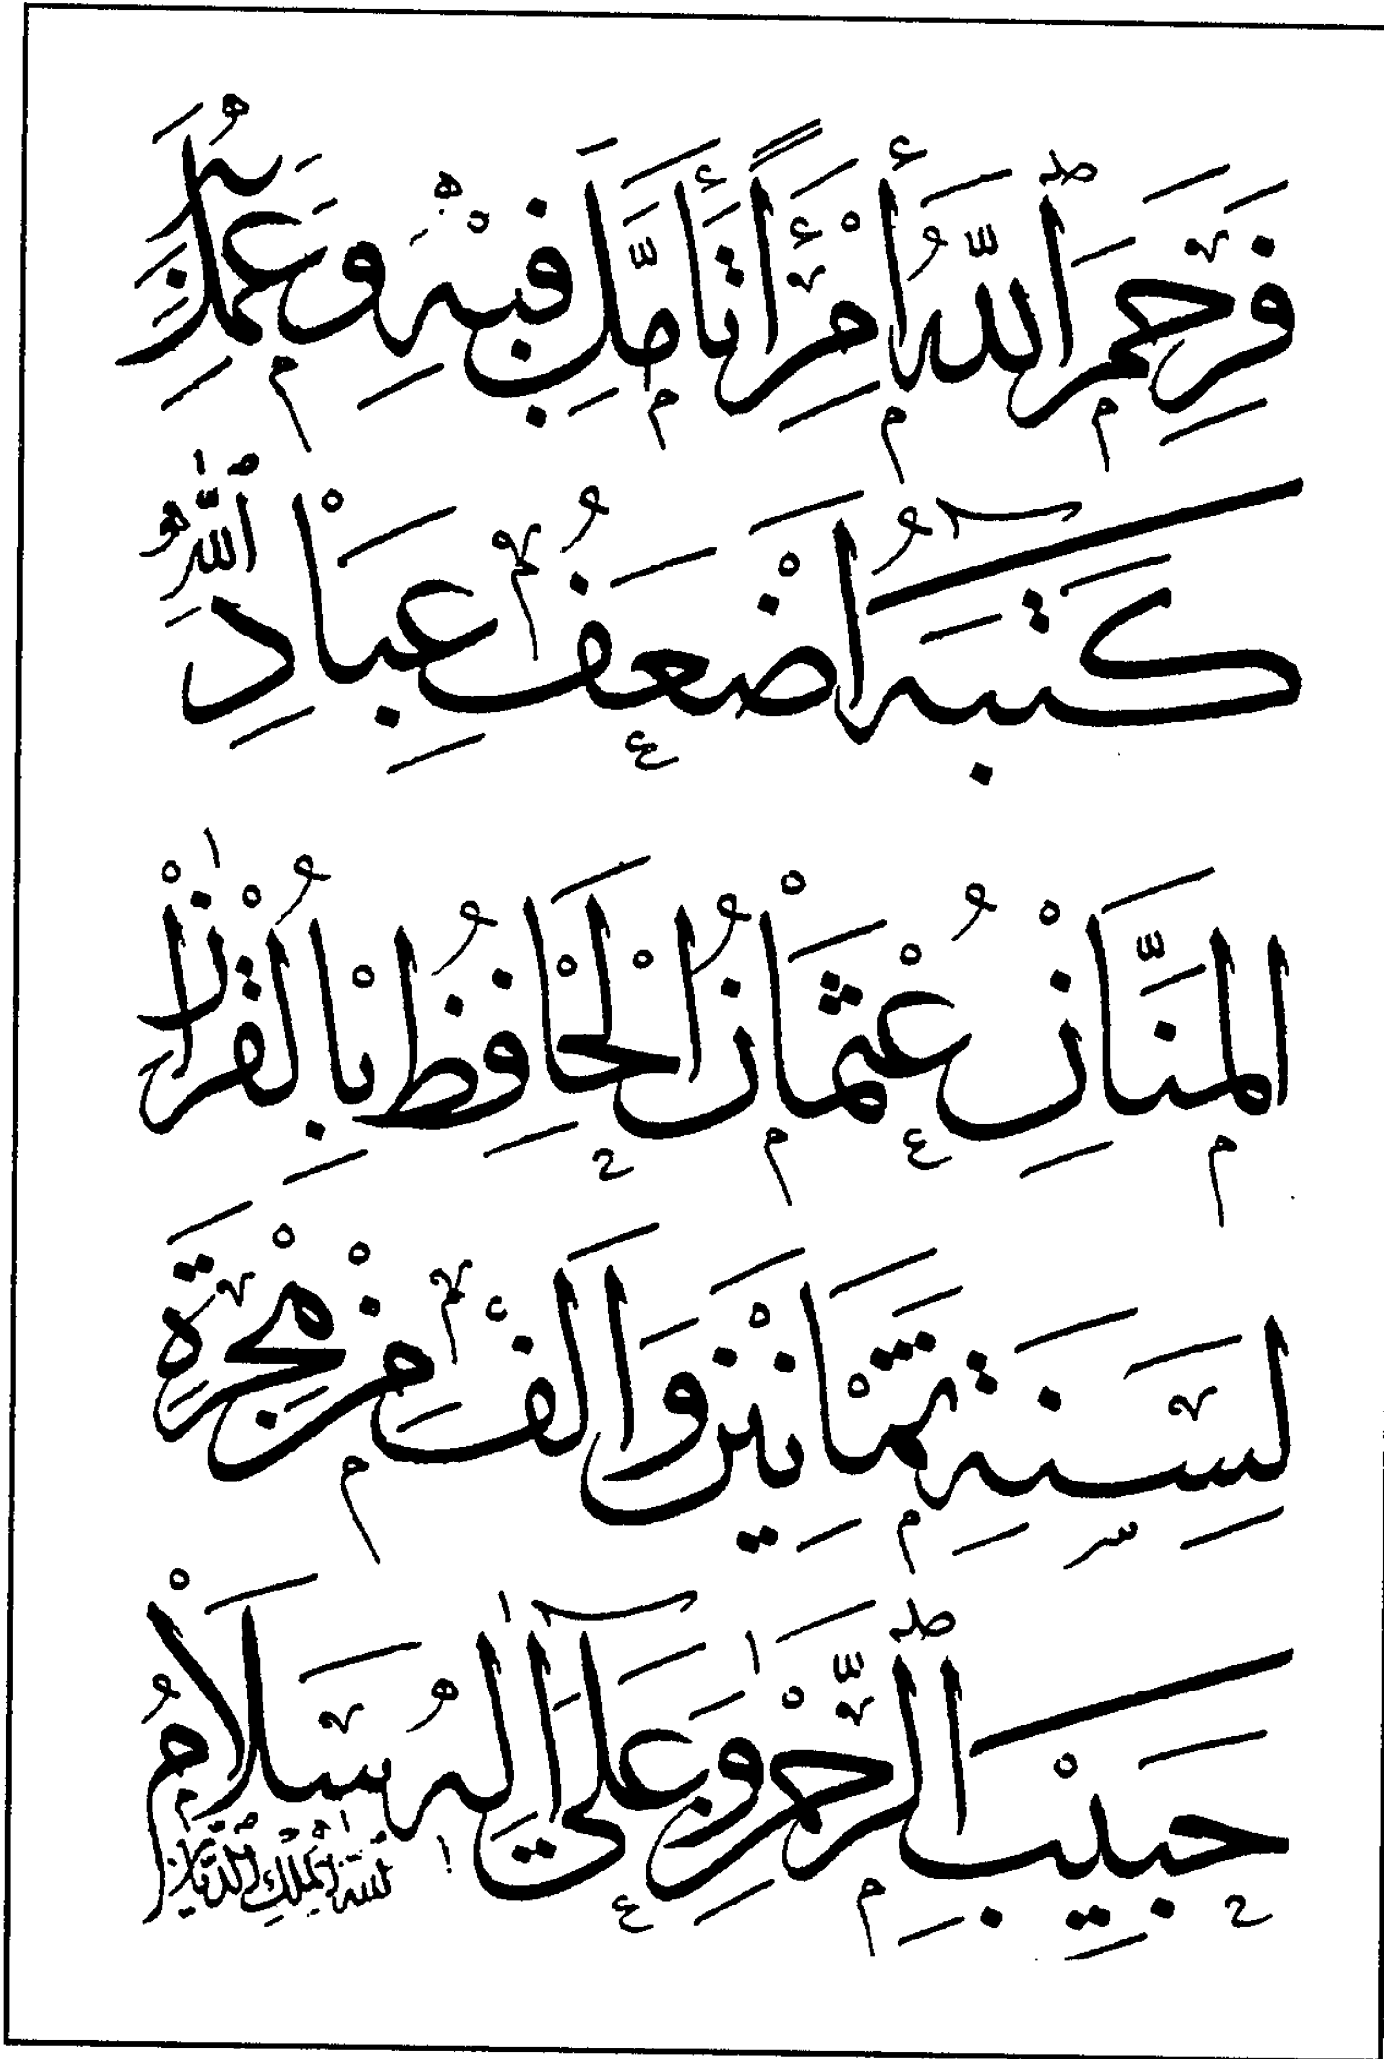 فَرَحِمَ اللّٰهُ أَمْرَأً تَأَمَّلَ فِيهِ وَعَمِلَ بِهِ
كَتَبَهُ اَضْعَفُ عِبَادِ اللّٰهِ
الْمَنَّانِ عُثْمَانُ الْحَافِظُ بِالْقُرْاٰنْ
لِسَنَةِ ثَمَانِينْ وَاَلْفِ مِنْ هِجْرَةِ
حَبِيبِ الرَّحْمٰنِ وَعَلٰى اٰلِهِ سَلَامُ
اللّٰهِ الْمَلِكِ